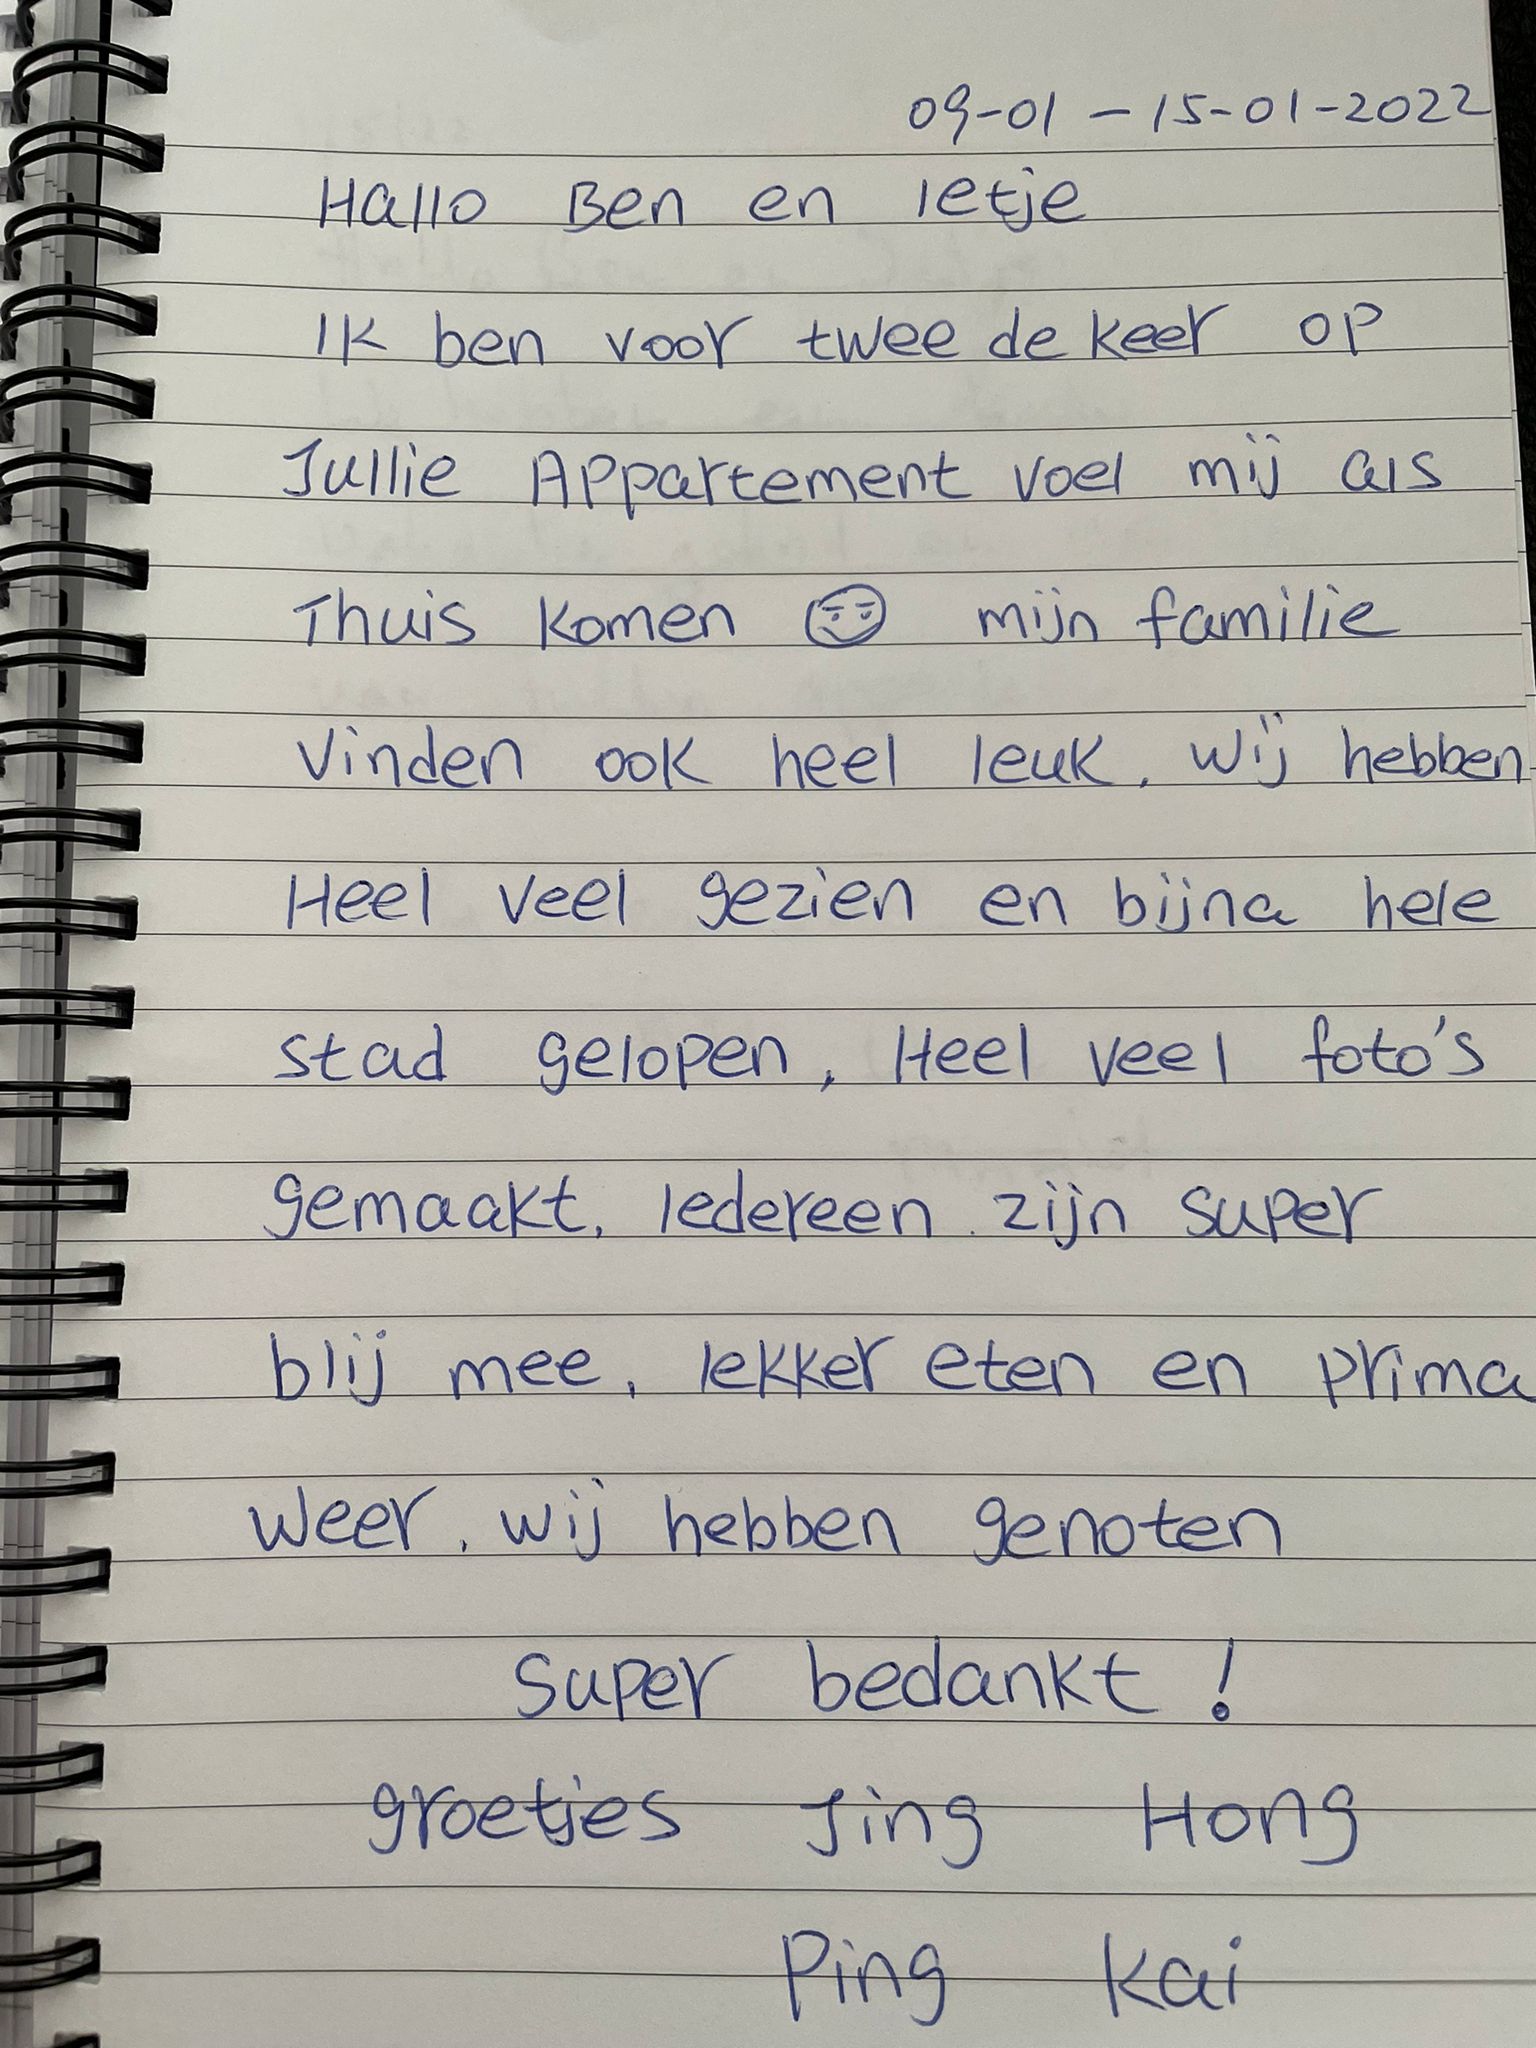 09-01 - 15-01-2022
Hallo Ben en Ietje
Ik ben voor twee de keer op
Jullie Appartement voel mij als
Thuis komen mijn familie
vinden ook heel leuk. wij hebben
Heel veel gezien en bijna hele
stad gelopen, Heel veel foto's
gemaakt. Iedereen zijn super
blij mee, lekker eten en prima
weer, wij hebben genoten
super bedankt!
groetjes Jing Hong
Ping Kai